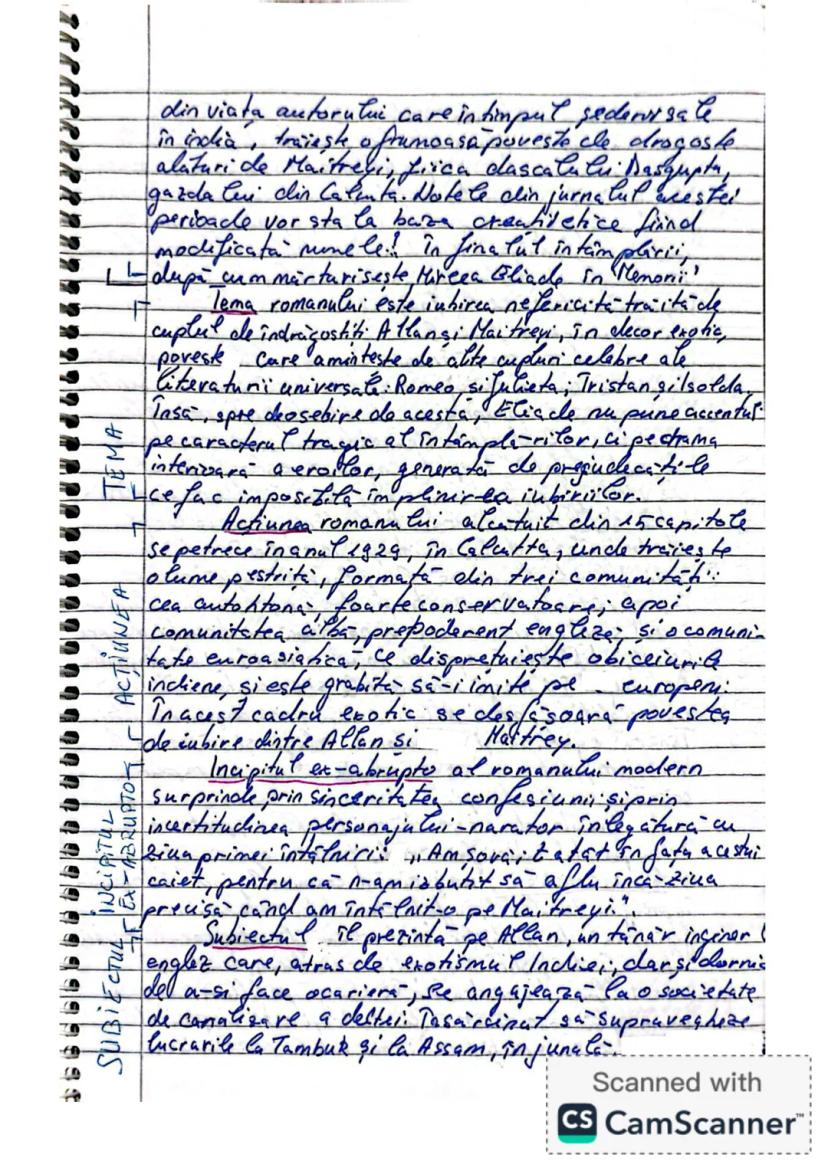 din viața autorului care în timpul șederii sale
în India, trăiește o frumoasă poveste de dragoste
alături de Maitreyi, fiica dascălului Dasgupta,
gazda lui din Calcuta. Notele din jurnalul acestei
perioade vor sta la baza creației etice fiind
modificată numele! În finalul întâmplării,
după cum mărturisește Mircea Eliade în "Memorii"
Tema romanului este iubirea nefericită trăită de
cuplul de îndrăgostiți Allan și Maitreyi, în decor exotic,
poveste care amintește de alte cupluri celebre ale
literaturii universale: Romeo și Julieta; Tristan și Isolda.
Însă, spre deosebire de acestă, Eliade nu pune accentul
pe caracterul tragic al întâmplă-rilor, ci pe drama
interioară a eroilor, generată de prejudecățile
ce fac imposibilă împlinirea iubirilor.
TEMA
Acțiunea romanului alcătuit din 15 capitole
se petrece în anul 1929, în Calcutta, unde trăiește
o lume pestriță, formată din trei comunități:
cea autohtonă, foarte conservatoare; apoi
comunitatea albă, prepoderent engleze, și o comuni-
tate euroasiatică, ce disprețuiește obiceiurile
indiene, și este grăbită să-i imite pe europeni.
În acest cadru exotic se desfășoară povestea
de iubire dintre Allan și Maitrey.
ACȚIUNEA
Incipitul ex-abrupto al romanului modern
surprinde prin sinceritatea confesiunii și prin
incertitudinea personajului-narator în legătură cu
ziua primei întâlniri: „Am șovăit atât în fața acestui
caiet, pentru că n-am izbutit să aflu încă ziua
precisă când am întâlnit-o pe Maitreyi.".
INCIPITUL
EX-ABRUPTO
Subiectul îl prezintă pe Allan, un tânăr inginer
englez care, atras de exotismul Indiei, dar și dornic
de a-și face o carieră, se angajează la o societate
de canalizare a deltei. Însărcinat să supravegheze
lucrările la Tambuk și la Assam, în junglă.
SUBIECTUL
Scanned with
CS CamScanner™